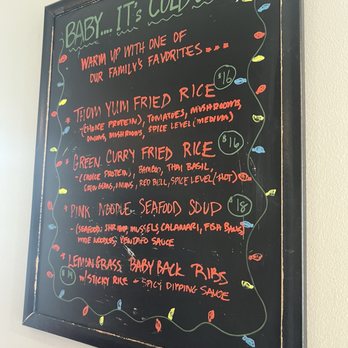 BABY.... IT'S COLD
WARM UP WITH ONE OF
OUR FAMILY'S FAVORITES...
* THOM YUM FRIED RICE $16
- (CHOICE PROTEIN), TOMATOES, MUSHROOMS,
ONIONS, MUSHROOMS, SPICE LEVEL (MEDIUM)
* GREEN CURRY FRIED RICE $16
- (CHOICE PROTEIN), BAMBOO, THAI BASIL,
GREEN BEANS, ONIONS, RED BELL, SPICE LEVEL (HOT)
* PINK NOODLE SEAFOOD SOUP $18
- (SEAFOOD: SHRIMP, MUSSELS, CALAMARI, FISH BALLS
WIDE NOODLES, YENTAFO SAUCE
* LEMONGRASS BABY BACK RIBS
W/ STICKY RICE + SPICY DIPPING SAUCE